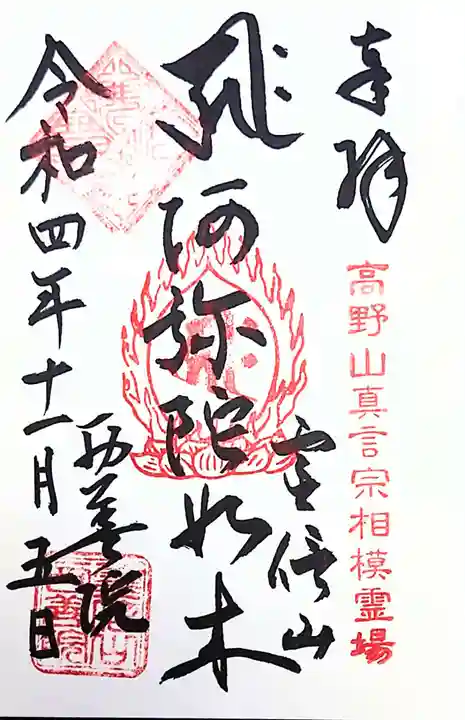 奉拝
高野山真言宗相模霊場
阿弥陀如来
西善院
令和四年十一月五日